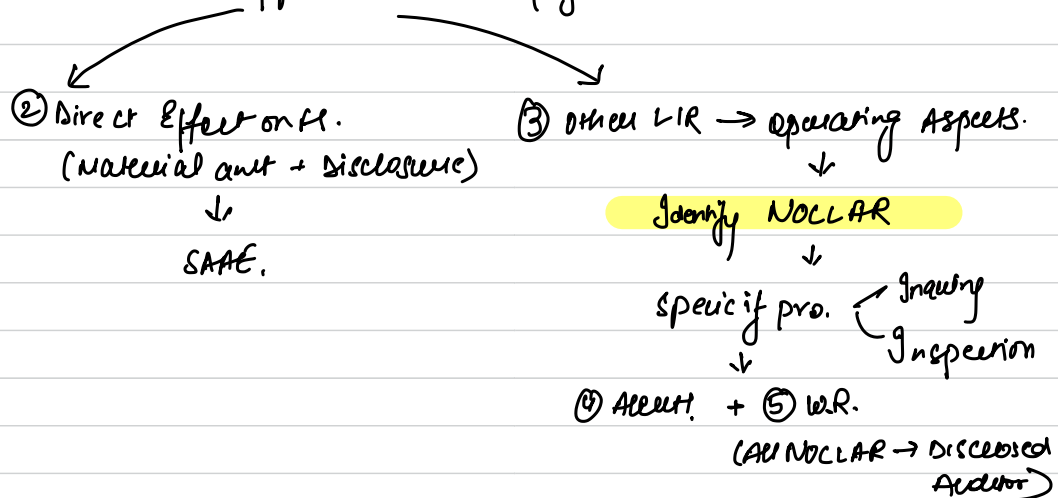 ② Direct Effect on fs.
(Material amt + Disclosure)
↓
SAAE.
③ Other LIR → Operating Aspects.
↓
Identify NOCLAR
↓
Specif pro. Inquiry
Inspection
↓
④ Alert! + ⑤ W.R.
(All NOCLAR → Disclosed
Auditor)